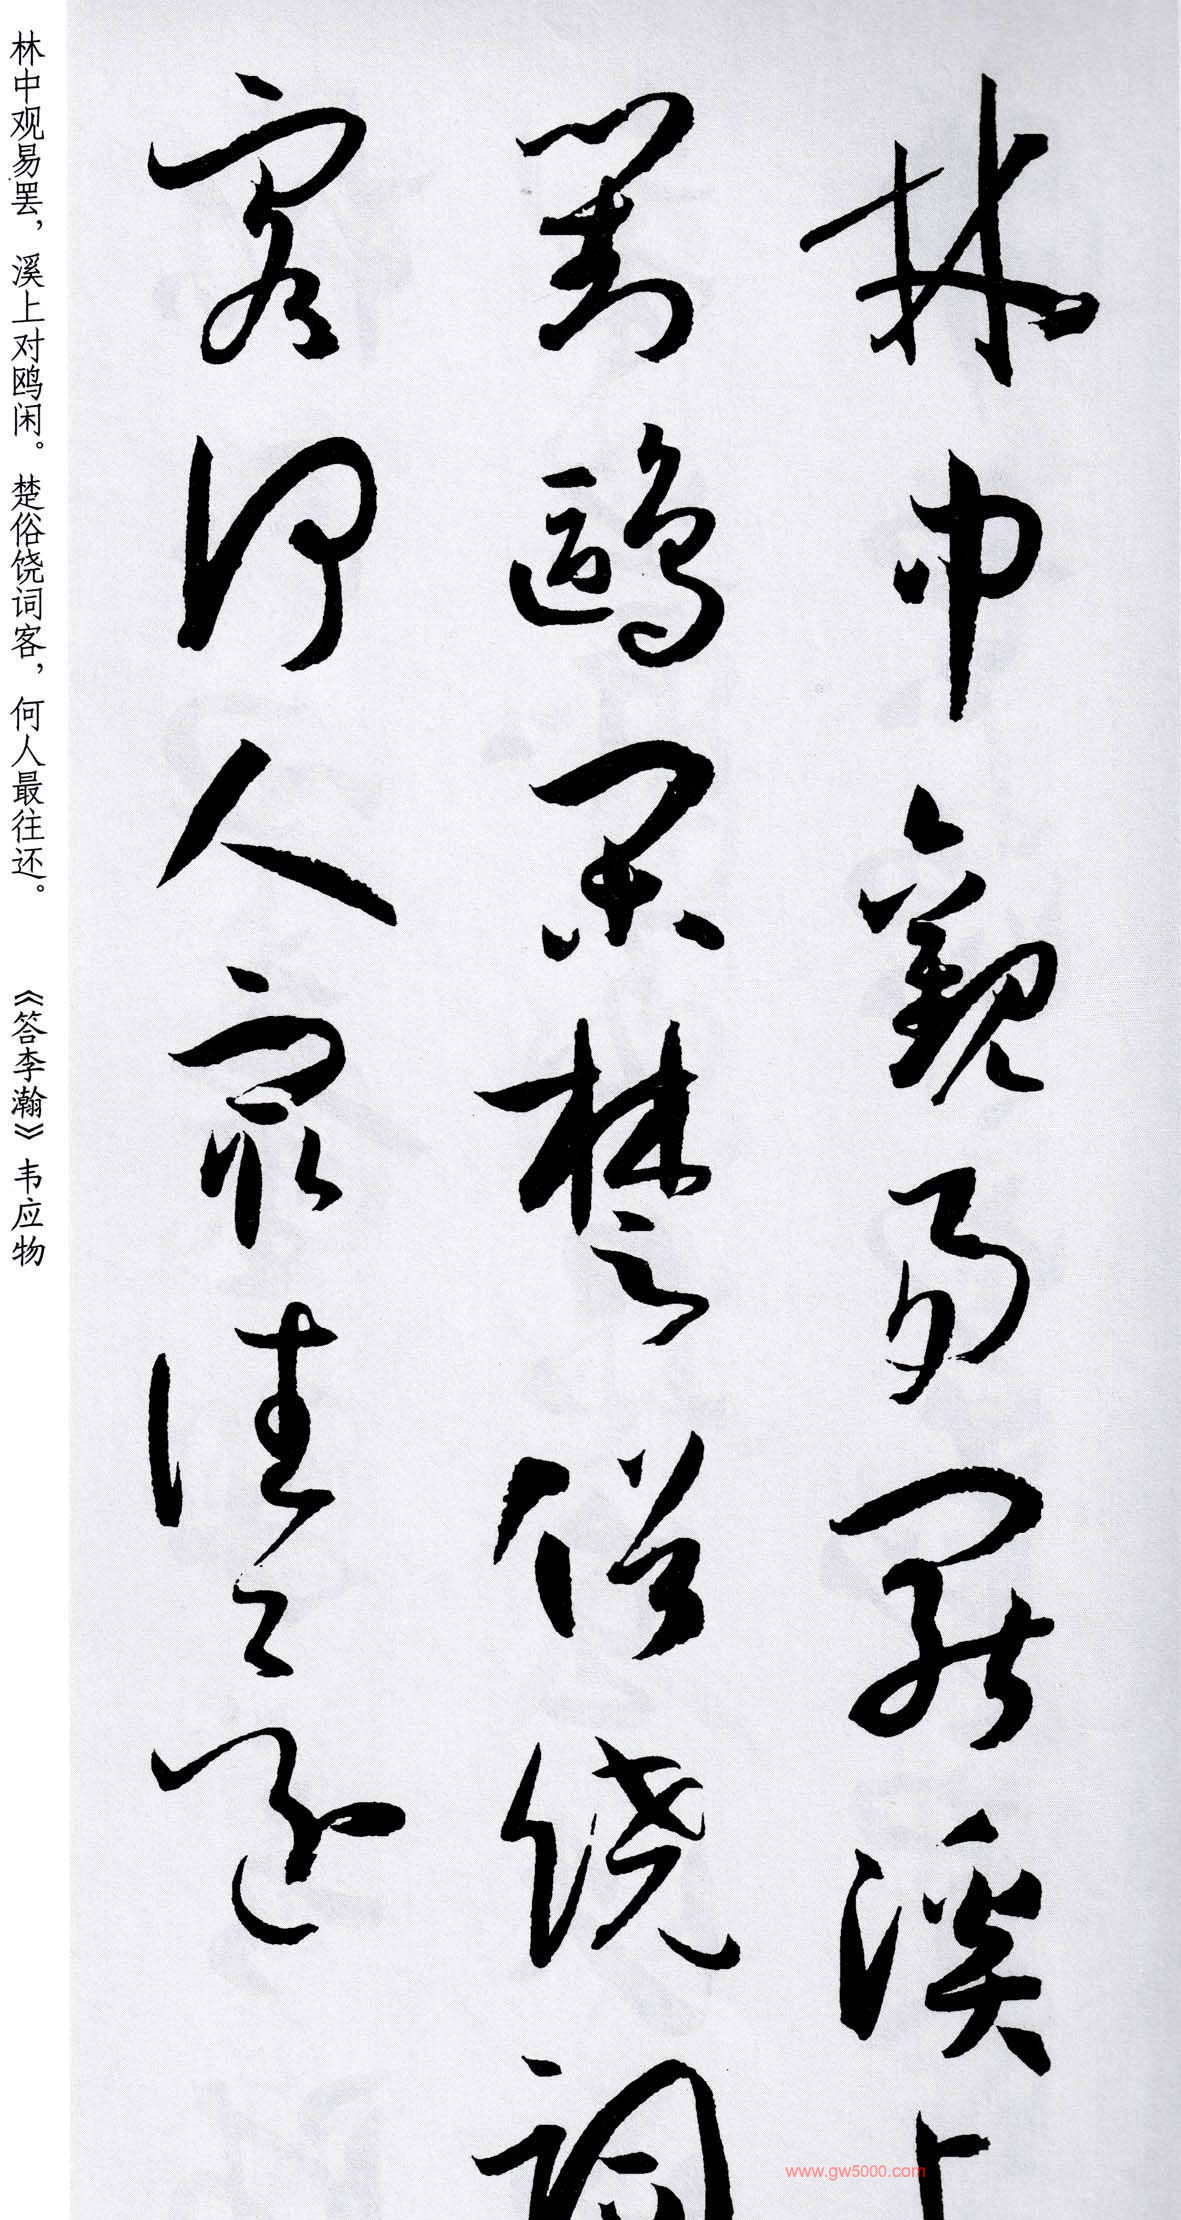 林中觀易罷溪上
對鷗閑楚俗饒詞
客何人最往還
林中观易罢，溪上对鸥闲。楚俗饶词客，何人最往还。 《答李瀚》韦应物
www.gw5000.com